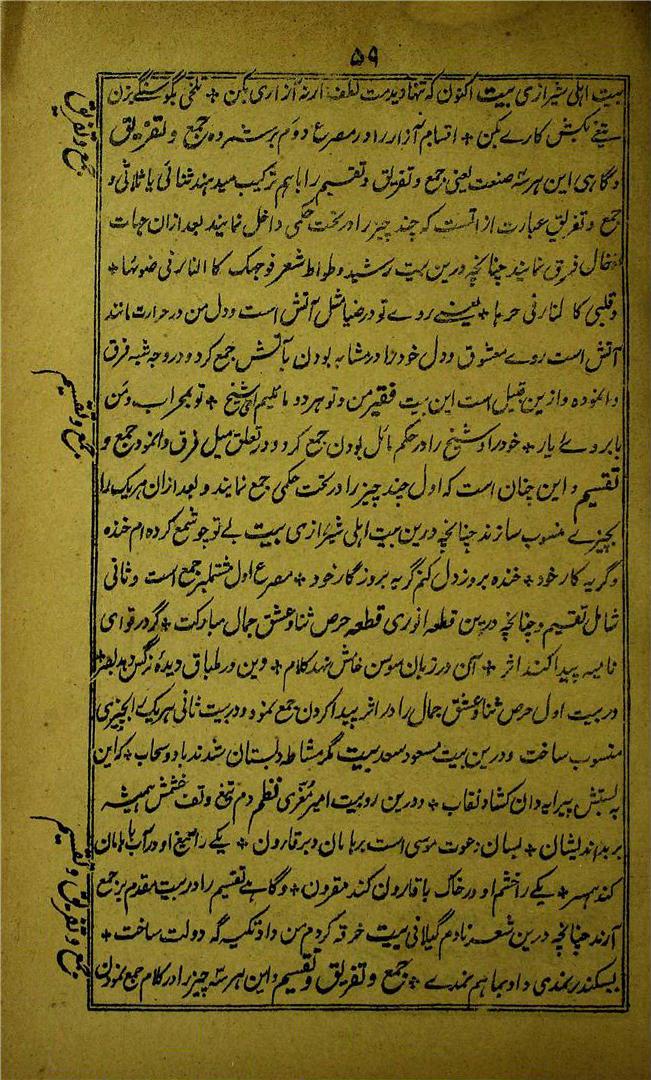 ۵۹
بیت اہلی شیرازی بیت اکنون کہ تنہا دیدمت لطف ارنہ آزاری بکن + تلخی بگو سنگے بزن
تیغے بکش کارے بکن + اقسام آزار را در مصرع دوم برشمرده جمع و تفریق
و گاہی این ہر سہ صنعت یعنی جمع و تفریق و تقسیم را باہم ترکیب میدہند ثنائی یا ثلاثی و
جمع و تفریق عبارت ازانست کہ چند چیز را در تحت حکمی داخل نمایند بعد ازان جہات
ادخال فرق نمایند چنانچہ درین بیت رشید وطواط شعر فوجہک کا النار فی ضوئہا +
و قلبی کا لنار فی حرہا + یعنے روے تو در ضیا مثل آتش است و دل من در حرارت مانند
آتش است روے معشوق و دل خود را در مشابہ بودن بآتش جمع کرد و در وجہ شبہ فرق
وانمودہ و ازین قبیل است این بیت فقیر من و تو ہر دو مائلیم ای شیخ + تو بمحراب و من
بابروے یار + خود را و شیخ را در حکم مائل بودن جمع کرد و در تعلق میل فرق وانمود جمع و
تقسیم و این چنان است کہ اول چند چیز را در تحت حکمی جمع نمایند و بعد ازان ہر یک را
بچیزے منسوب سازند چنانچہ درین بیت اہلی شیرازی بیت بے تو چو شمع کردہ ام خندہ
و گریہ کار خود + خندہ بروز دل کنم گریہ بروزگار خود + مصرع اول مشتملبر جمع است و ثانی
شامل تقسیم و چنانچہ درین قطعہ انوری قطعہ حرص ثنا و عشق جمال مبارکت + گر در قوای
نامیہ پیدا کند اثر + آن در زبان سوسن خامش نہد کلام + وین در طباق دیدۂ نرگس دہد بصر +
در بیت اول حرص ثنا و عشق جمال را در اثر پیدا کردن جمع نمود و در بیت ثانی ہر یک را بچیزی
منسوب ساخت و درین بیت مسعود سعد بیت گر مشاطۂ بستان شدند باد و سحاب + کہ این
ببستش پیرایہ وان کشاد نقاب + و درین دو بیت امیر معزی نظم دم تیغ و تف خشمش ہمیشہ
بر بداندیشان + بسان دعوت موسی است بر ہامان و بر قارون + یکے را تیغ او در آب با ہامان
کند ہمسر + یکے را خشم او در خاک با قارون کند مقرون + و گاہے تقسیم را در بیت مقدم بر جمع
آرند چنانچہ درین شعر نادم گیلانی بیت خرقہ کردم من داد تکیہ گہ دولت ساخت +
بسکندر نمدی داد بما ہم نمدے + جمع و تفریق و تقسیم و این ہر سہ چیز را در کلام جمع نمودن
جمع و تفریق
جمع و تقسیم
جمع و تفریق و تقسیم